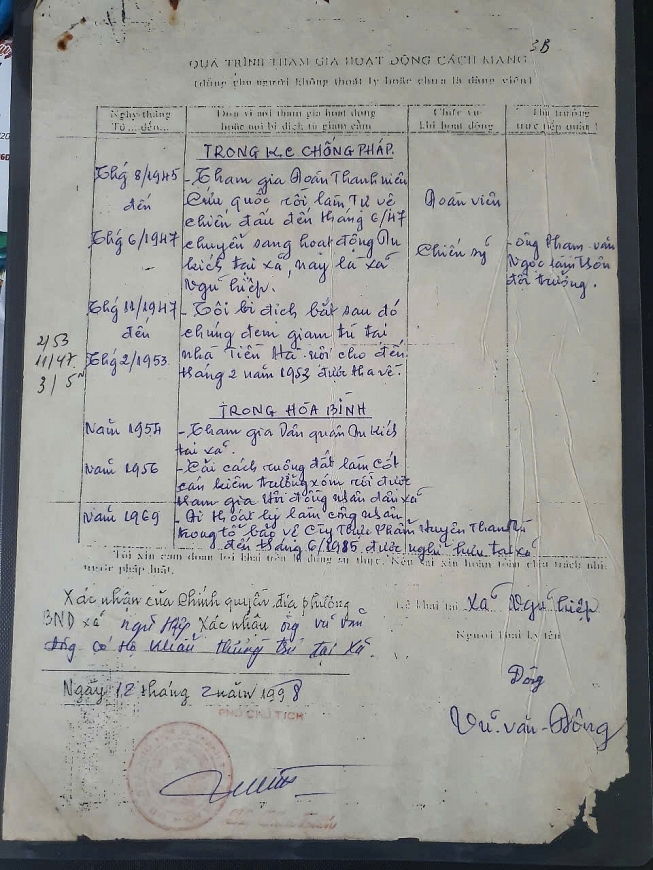 3B
QUÁ TRÌNH THAM GIA HOẠT ĐỘNG CÁCH MẠNG
(dùng cho người không thoát ly hoặc chưa là đảng viên)
Ngày tháng
Từ ... đến...
Đơn vị nơi tham gia hoạt động
hoặc nơi bị địch tù giam cầm
Chức vụ
khi hoạt động
Thủ trưởng
trực tiếp quản lý
TRONG K.C CHỐNG PHÁP.
Thg 8/1945
đến
Thg 6/1947
- Tham gia Đoàn Thanh niên
Cứu quốc rồi làm Tự vệ
chiến đấu đến tháng 6/47
chuyển sang hoạt động Du
kích tại xã, nay là xã
Ngũ hiệp.
Đoàn viên
Chiến sỹ
- ông Phạm văn
Ngọc làm thôn
đội trưởng.
Thg 11/1947
đến
Thg 2/1953
- Tôi bị địch bắt sau đó
chúng đem giam tù tại
nhà Tiền Hà Nội cho đến
tháng 2 năm 1953 được tha về.
2/53
11/47
3/5
TRONG HÒA BÌNH
Năm 1954
- Tham gia Dân quân Du kích
tại xã.
Năm 1956
- Cải cách ruộng đất làm cốt
cán kiêm trưởng xóm rồi được
tham gia Hội đồng nhân dân xã
Năm 1969
- Đi thoát ly làm công nhân
trong tổ bảo vệ Cty Thực Phẩm Huyện Thanh Trì
đến tháng 6/1985 được nghỉ hưu tại xã
Tôi xin cam đoan lời khai trên là đúng sự thực. Nếu sai xin hoàn toàn chịu trách nhiệm
trước pháp luật.
Xác nhận của Chính quyền địa phương
BND xã ngũ Hiệp Xác nhận ông vũ văn
đông có Hộ khẩu thường trú tại xã.
Ngày 12 tháng 2 năm 1998
PHÓ CHỦ TỊCH
khai tại Xã Ngũ hiệp
Người khai ký tên
Đông
Vũ văn Đông